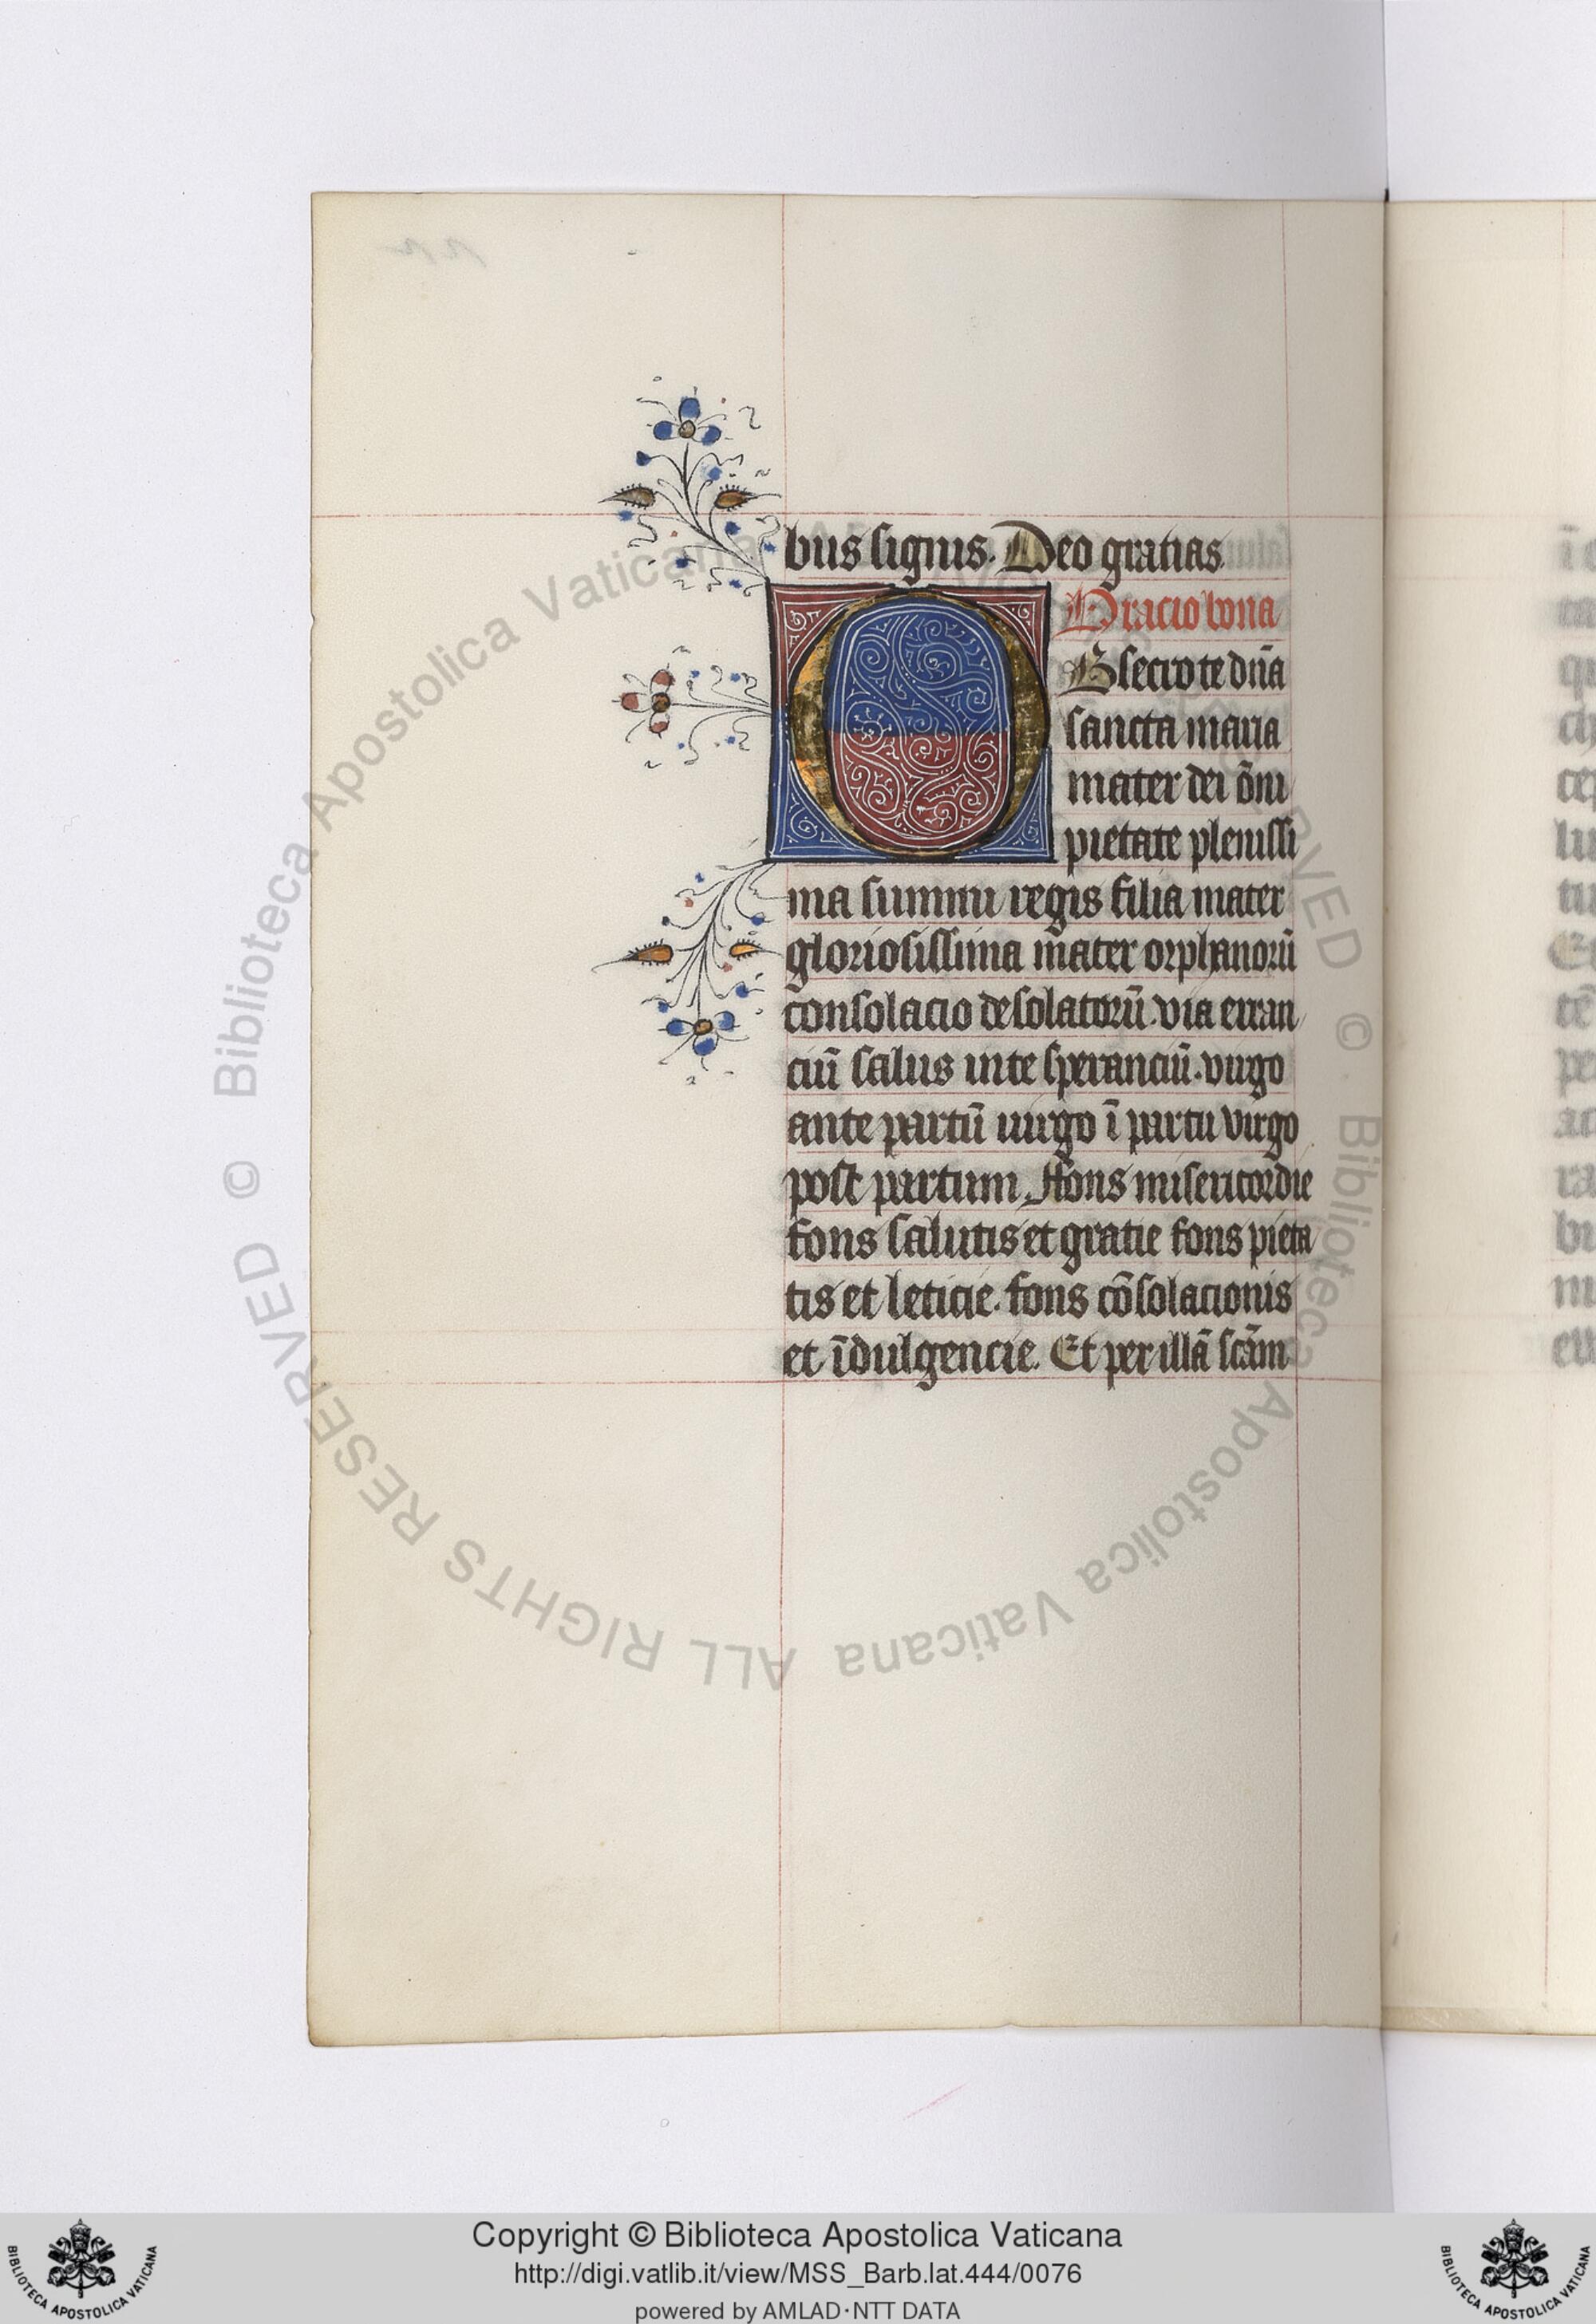 bus signis. Deo gratias
Oracio bona
Obsecro te dn̄a
sancta maria
mater dei ōni
pietate plenissi
ma summi regis filia mater
gloriosissima mater orphanorū
consolacio desolatorū. via erran
ciū salus in te speranciū. virgo
ante partū uirgo ī partu virgo
post partum. Ffons misericordie
fons salutis et gratie fons pieta
tis et leticie. fons cōsolacionis
et īdulgencie. Et per illā scām
© Biblioteca Apostolica Vaticana ALL RIGHTS RESERVED
© Biblioteca Apostolica Vaticana
Copyright © Biblioteca Apostolica Vaticana
http://digi.vatlib.it/view/MSS_Barb.lat.444/0076
powered by AMLAD·NTT DATA
BIBLIOTECA APOSTOLICA VATICANA
BIBLIOTECA APOSTOLICA VATICANA